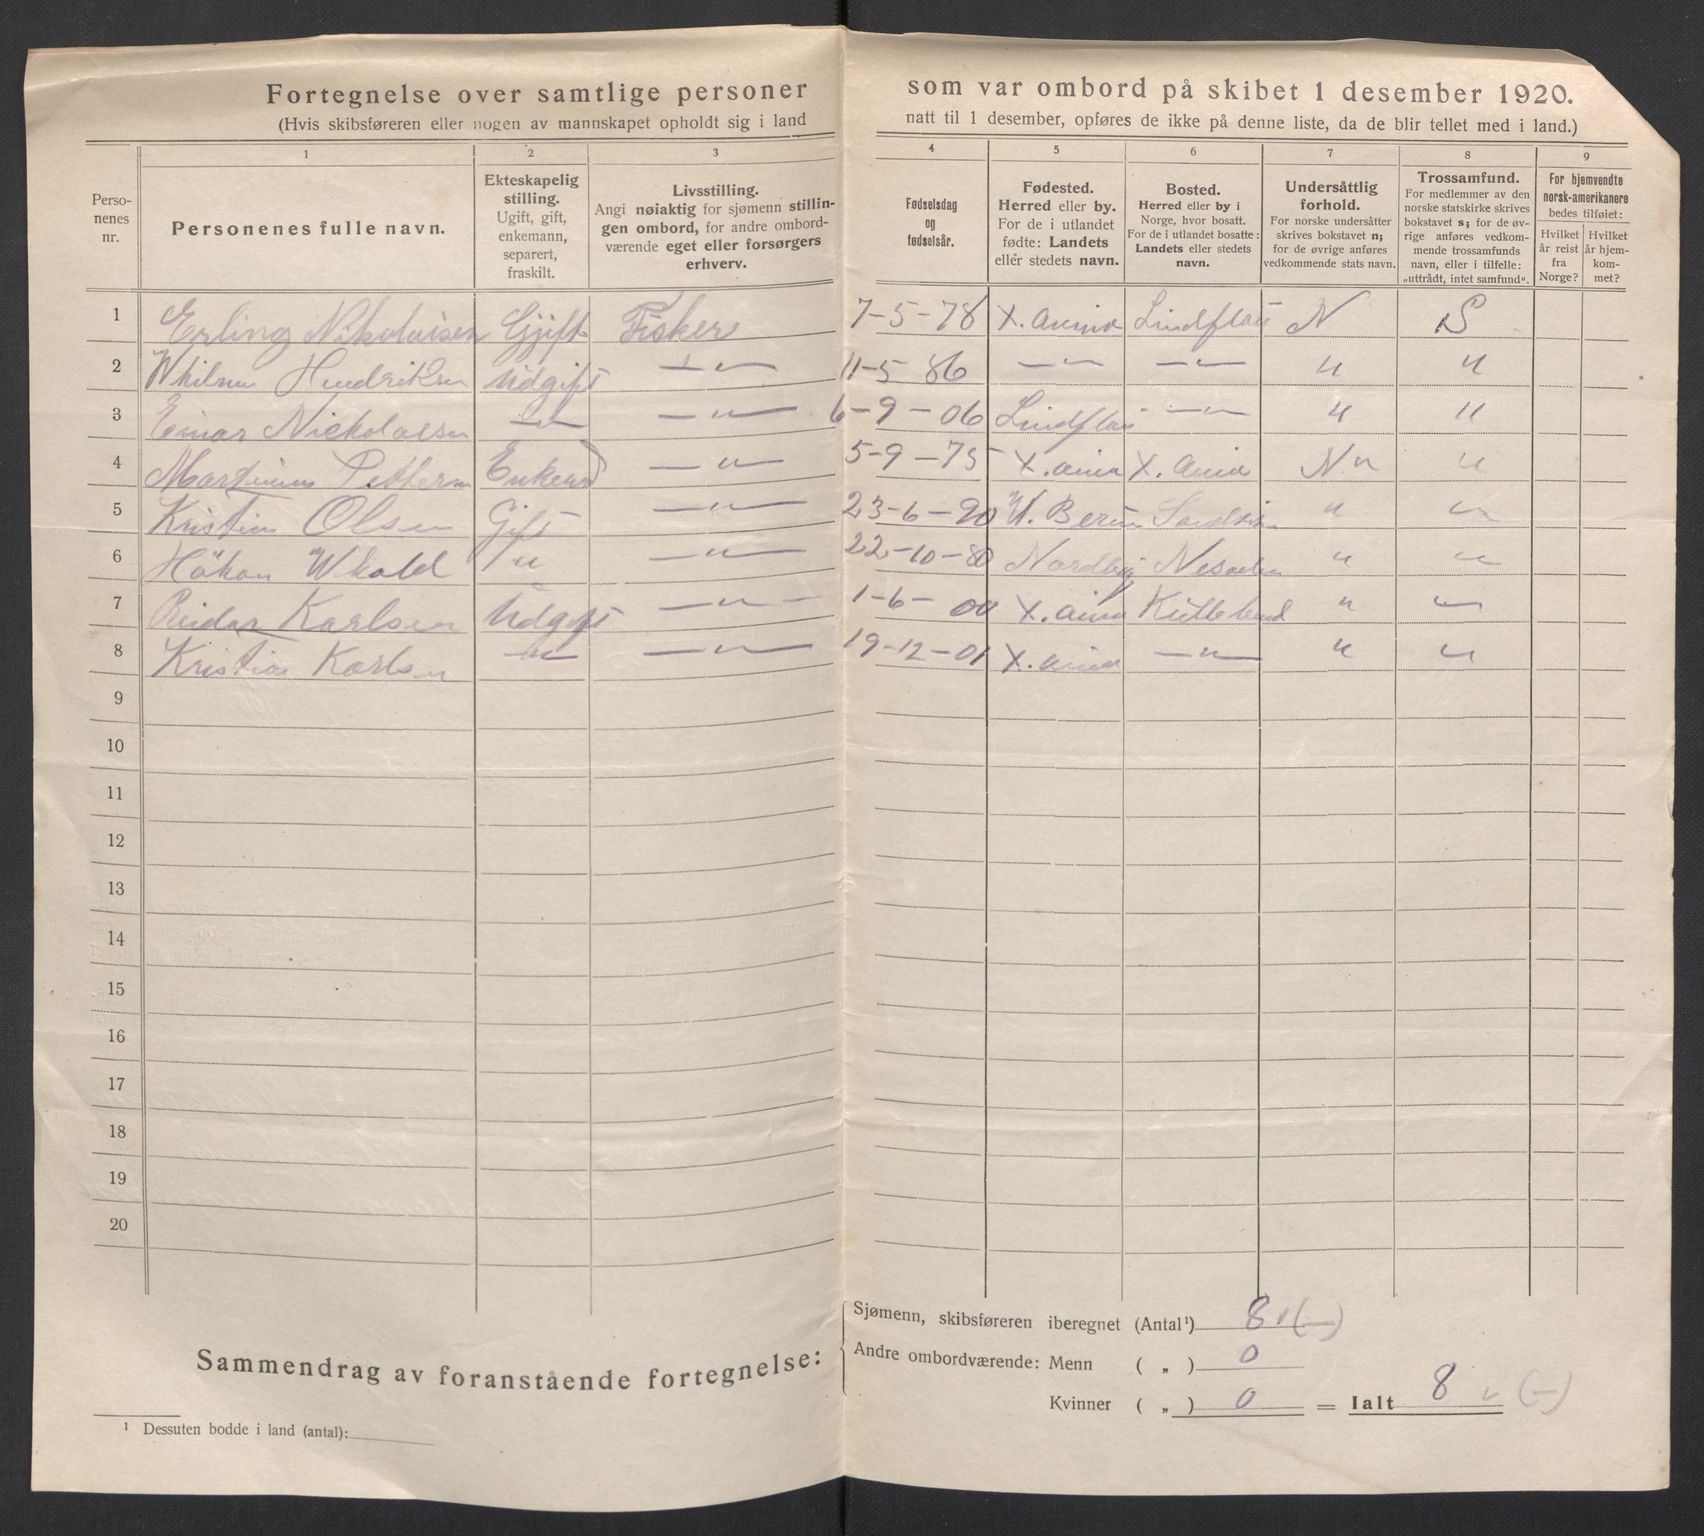 Fortegnelse over samtlige personer som var ombord på skibet 1 desember 1920.
(Hvis skibsføreren eller nogen av mannskapet opholdt sig i land natt til 1 desember, opføres de ikke på denne liste, da de blir tellet med i land.)
Perso-
nenes
nr.
1
Personenes fulle navn.
2
Ekteskapelig
stilling.
Ugift, gift,
enkemann,
separert,
fraskilt.
3
Livsstilling.
Angi nøiaktig for sjømenn stillin-
gen ombord, for andre ombord-
værende eget eller forsørgers
erhverv.
4
Fødselsdag
og
fødselsår.
5
Fødested.
Herred eller by.
For de i utlandet
fødte: Landets
eller stedets navn.
6
Bosted.
Herred eller by i
Norge, hvor bosatt.
For de i utlandet bosatte:
Landets eller stedets
navn.
7
Undersåttlig
forhold.
For norske undersåtter
skrives bokstavet n;
for de øvrige anføres
vedkommende stats navn.
8
Trossamfund.
For medlemmer av den
norske statskirke skrives
bokstavet s; for de øv-
rige anføres vedkom-
mende trossamfunds
navn, eller i tilfelle:
„uttrådt, intet samfund".
9
For hjemvendte
norsk-amerikanere
bedes tilføiet:
Hvilket
år reist
fra
Norge?
Hvilket
år hjem-
kom-
met?
1 Erling Nikolaisen Gjift Fisker 7-5-78 Lindflau N S
2 Hendriksen Udgift — " — 11-5 86 — " — — " — " "
3 Einar Nickolaisen — " — — " — 6-9-06 Lindflau — " — " "
4 Martinius Pettersen — " — 5-9-75 X.ania X.ania N " "
5 Kristian Olsen Gift — " — 23-6-90 Sandviken " "
6 Håkon Wkold " — " — 22-10-80 Nordby Nesodden " "
7 Reidar Karlsen Udgift — " — 1-6-00 X.ania " "
8 Kristian Karlsen — " — — " — 19-12-01 X.ania — " — " "
9
10
11
12
13
14
15
16
17
18
19
20
Sammendrag av foranstående fortegnelse:
Sjømenn, skibsføreren iberegnet (Antal¹) 8 v (—)
Andre ombordværende: Menn ( „ ) 0
Kvinner ( „ ) 0 = Ialt 8 v (—)
¹ Dessuten bodde i land (antal):